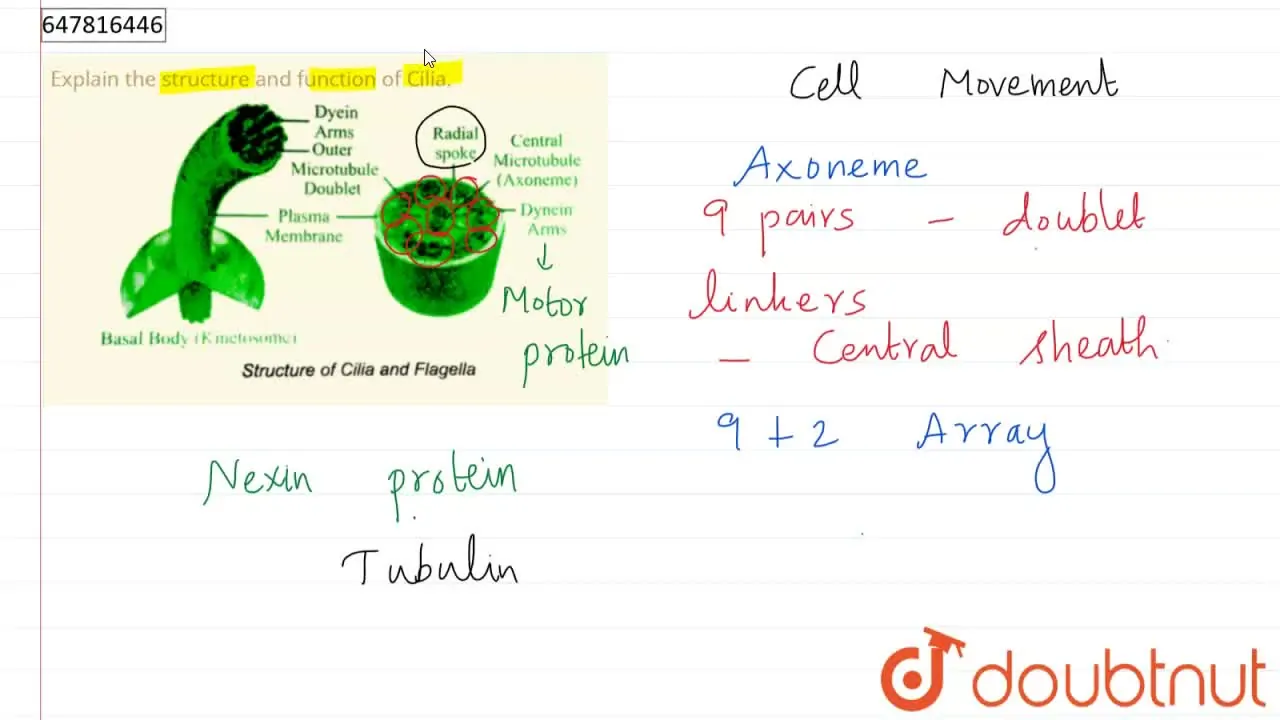 647816446
Explain the structure and function of Cilia.
Dyein
Arms
Outer
Microtubule
Doublet
Plasma
Membrane
Radial
spoke
Central
Microtubule
(Axoneme)
Dynein
Arms
Basal Body (Kinetosome)
Structure of Cilia and Flagella
Motor
protein
Nexin protein
Tubulin
Cell Movement
Axoneme
9 pairs - doublet
linkers
- Central sheath
9 + 2 Array
doubtnut